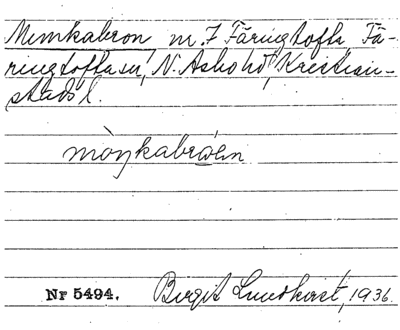 Munkabron m. 7 Färingtofta, Fä-
ringtofta sn, N. Åsbo hd, Kristian-
stads l.
mòŋkabròen
Nr 5494. Birgit Lundkvist, 1936.